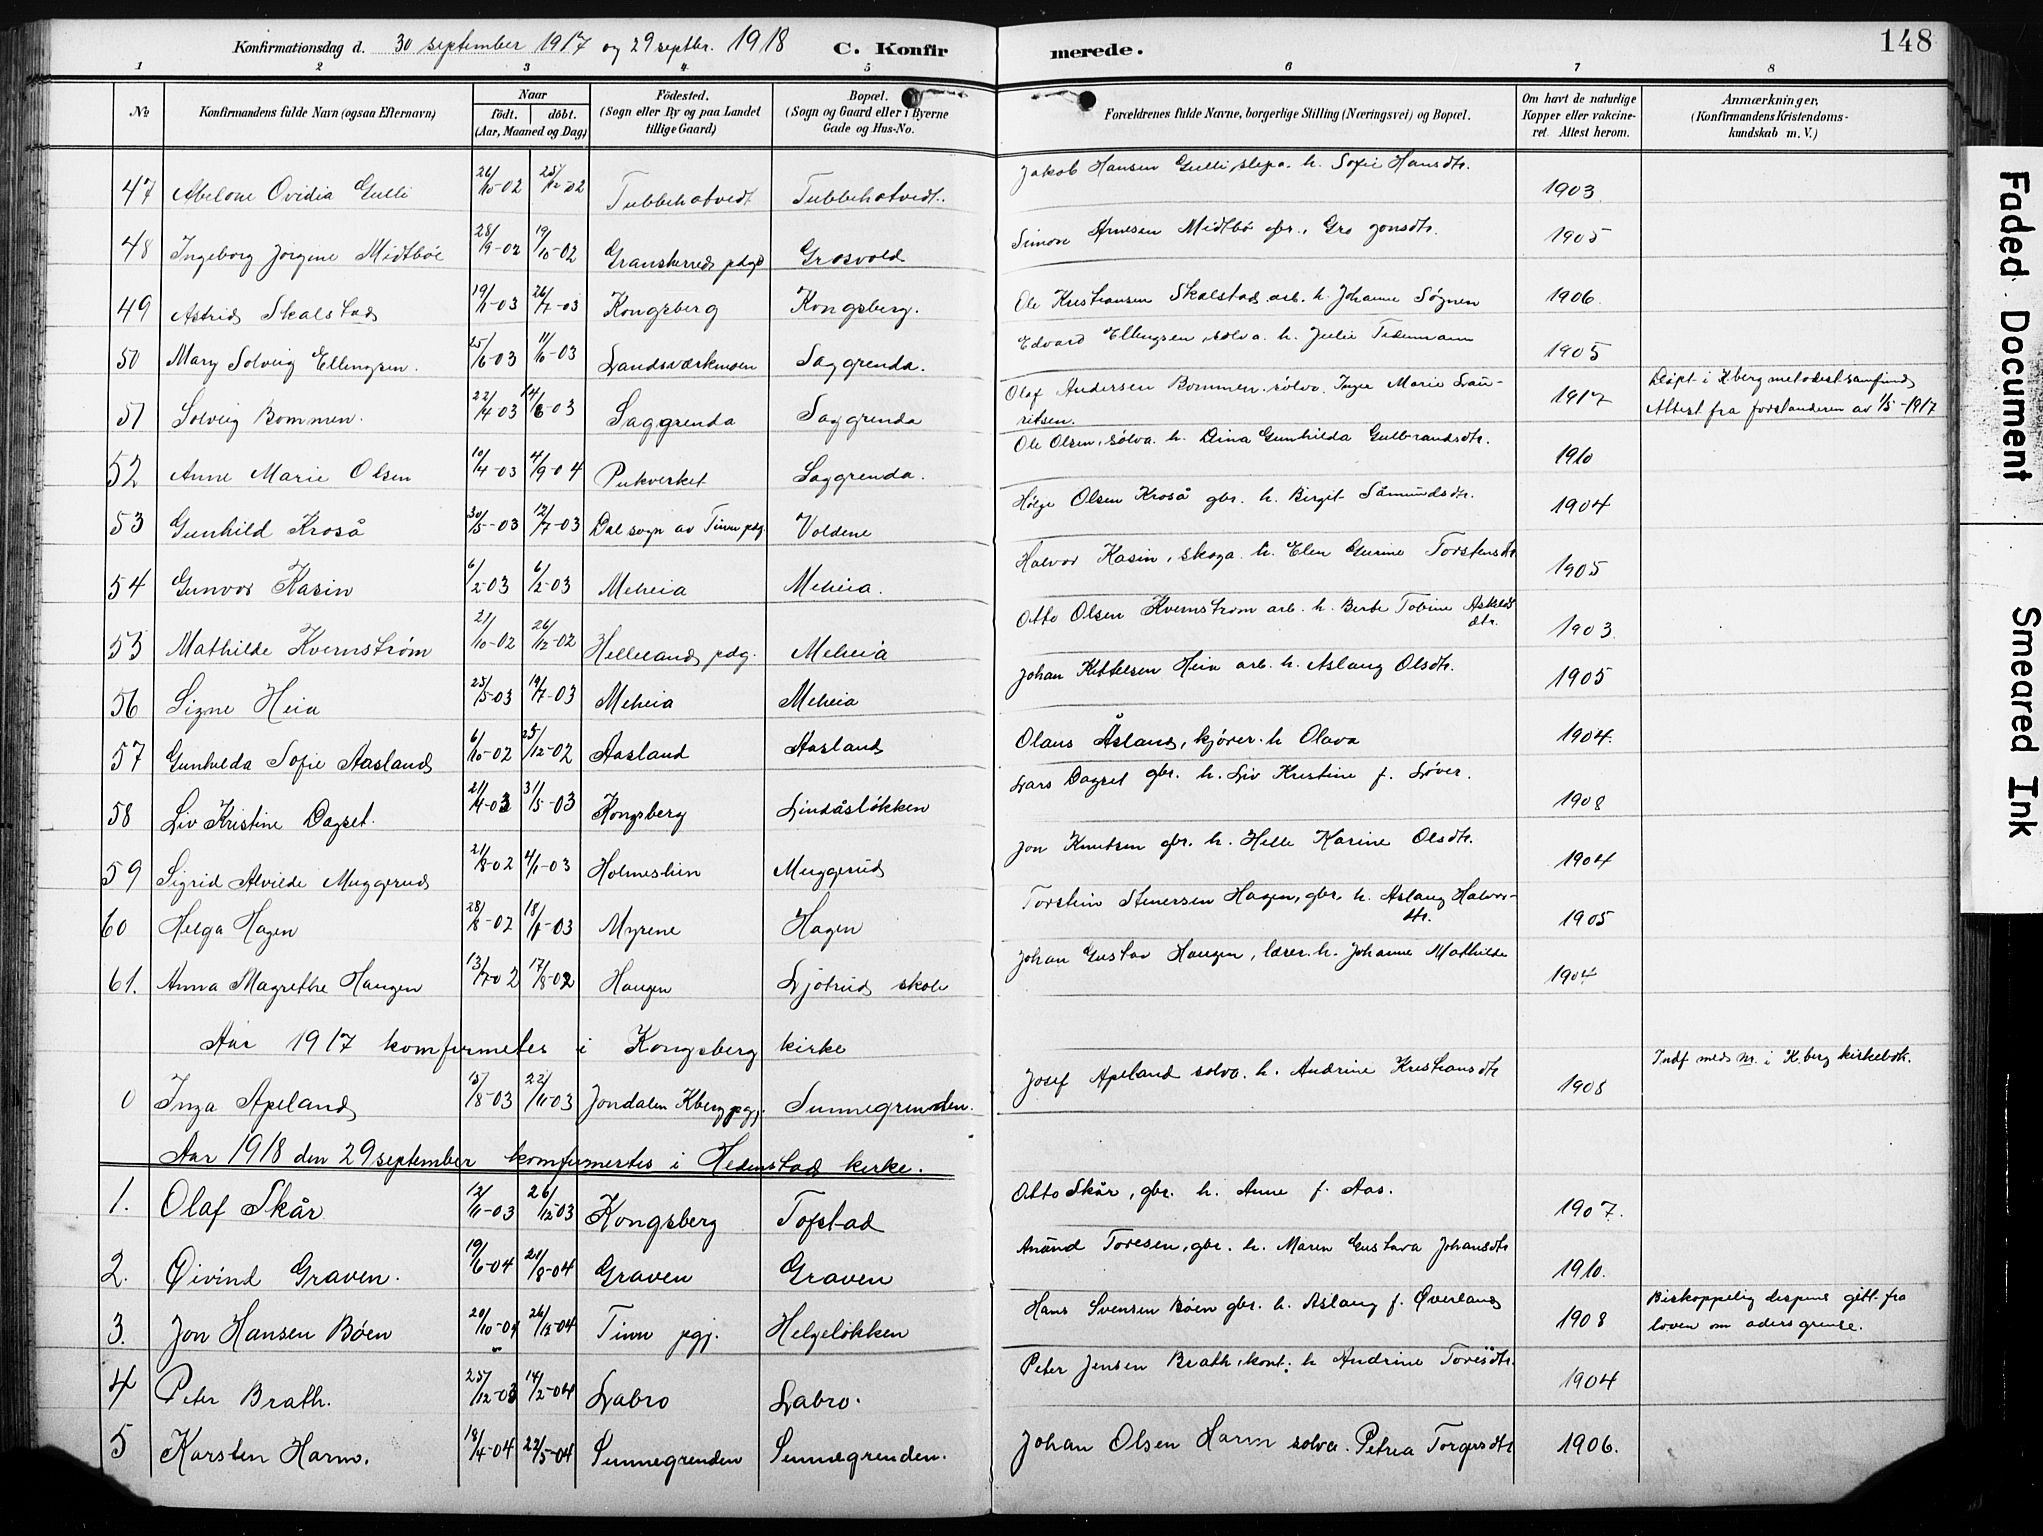 Konfirmationsdag d. 30 september 1917 og 29 septbr. 1918 C. Konfir merede. 148
1 2 3 4 5 6 7 8
No Konfirmandens fulde Navn (ogsaa Efternavn) Naar født. døbt. (Aar, Maaned og Dag) Fødested. (Sogn eller By og paa Landet tillige Gaard) Bopæl. (Sogn og Gaard eller i Byerne Gade og Hus-No. Forældrenes fulde Navne, borgerlige Stilling (Næringsvei) og Bopæl. Om havt de naturlige Kopper eller vakcineret. Attest herom. Anmærkninger, (Konfirmandens Kristendomskundskab m. V.)
47 Abelone Ovidia Gulli 26/10-02 25/12 02 Tubbehotvedt Tubbehotvedt. Jakob Hansen Gulli, slepa. h. Sofie Hansdtr. 1903
48 Ingeborg Jørgine Midtbøe 28/9-02 19/10-02 Gransherred pdgd Grosvold Simon Arnesen Midtbø gbr., Gro Jonsdtr. 1905
49 Astrid Skalstad 19/1-03 26/7-03 Kongsberg Kongsberg. Ole Kristiansen Skalstad arb. h. Johanne Søgnen 1906.
50 Mary Solveig Ellingsen. 25/6-03 11/10-03 Landsværkmoen Saggrenda. Edvard Ellingsen, sølva. h. Julie Tidemann 1905
51 Solveig Bommen. 22/4 03 14/6-03 Saggrenda Saggrenda Olaf Andersen Bommen. sølva. Inger Marie Lauritsen. 1917 Døpt i Kberg metodistsamfund Attest fra forstanderen av 1/5-1917
52 Anne Marie Olsen 10/4-03 4/9-04 Pukverket Saggrenda. Ole Olsen, sølva. h. Dina Gunhilda Gulbrandsdtr. 1910
53 Gunhild Kroså 30/5-03 12/7-03 Dal sogn av Tinn pdg Voldene Helge Olsen Kroså gbr. h. Birgit Såmundsdtr. 1904
54 Gunvor Kasin 6/2-03 6/2-03 Meheia Meheia. Halvor Kasin, skoga. h. Elen Gurine Torstensdtr 1905
55 Mathilde Kvernstrøm 21/10-02 26/12-02 Helleland pdg. Meheia Otto Olsen Kvernstrøm arb. h. Berte Tobine Askildsdtr. 1903.
56 Signe Heia 25/5-03 19/7-03 Meheia Meheia Johan Kittelsen Heia arb. h. Aslaug Olsdtr. 1905
57 Gunhilda Sofie Aasland 6/10-02 25/12-02 Aasland Aasland Olaus Åsland, kjører. h Olava 1904.
58 Liv Kristine Dagset. 21/4-03 31/5-03 Kongsberg Lindåsløkken Lars Dagset gbr. h. Liv Kristine f. Løver. 1908
59 Sigrid Alvilde Muggerud 21/8-02 4/1-03 Holmestien Muggerud Jon Knutsen gbr. h. Helle Karine Olsdtr. 1904
60 Helga Hagen 28/8-02 18/1-03 Myrene Hagen Torstein Stenersen Hagen, gbr. h. Aslaug Halvorsdtr. 1905
61. Anna Magrethe Haugen 13/7-02 17/8-02 Haugen Ljøtrud skole Johan Gustav Haugen, lærer. h. Johanne Mathilde 1904
Aar 1917 komfirmetes i Kongsberg kirke
0 Inga Apeland 15/8-03 22/11-03 Jondalen Kberg pgj. Sunnegrenden. Josef Apeland sølva. h. Andrine Kristiansdtr 1908 Indf med nr. i K.berg kirkebok.
Aar 1918 den 29 september komfirmertes i Hedenstad kirke.
1. Olaf Skår 12/11-03 26/12 03 Kongsberg Tofstad Otto Skår, gbr. h. Anne f. Aas. 1907.
2. Øivind Graven. 19/6-04 21/8-04 Graven Graven Anund Toresen, gbr. h. Maren Gustava Johansdtr 1910.
3. Jon Hansen Bøen 20/10-04 26/12-04 Tinn pgj. Helgeløkken Hans Svensen Bøen gbr. h. Aslaug f. Øverland 1908 Biskoppelig dispens gitt fra loven om aldersgrense.
4 Peter Brath. 25/12-03 14/2-04 Labro Labro. Peter Jensen Brath, kont. h Andrine Toresdtr. 1904
5 Karsten Harm. 18/4-04 22/5-04 Sunnegrenden Sunnegrenden. Johan Olsen Harm sølva. Petrea Torgersdtr 1906.
Faded Document Smeared Ink